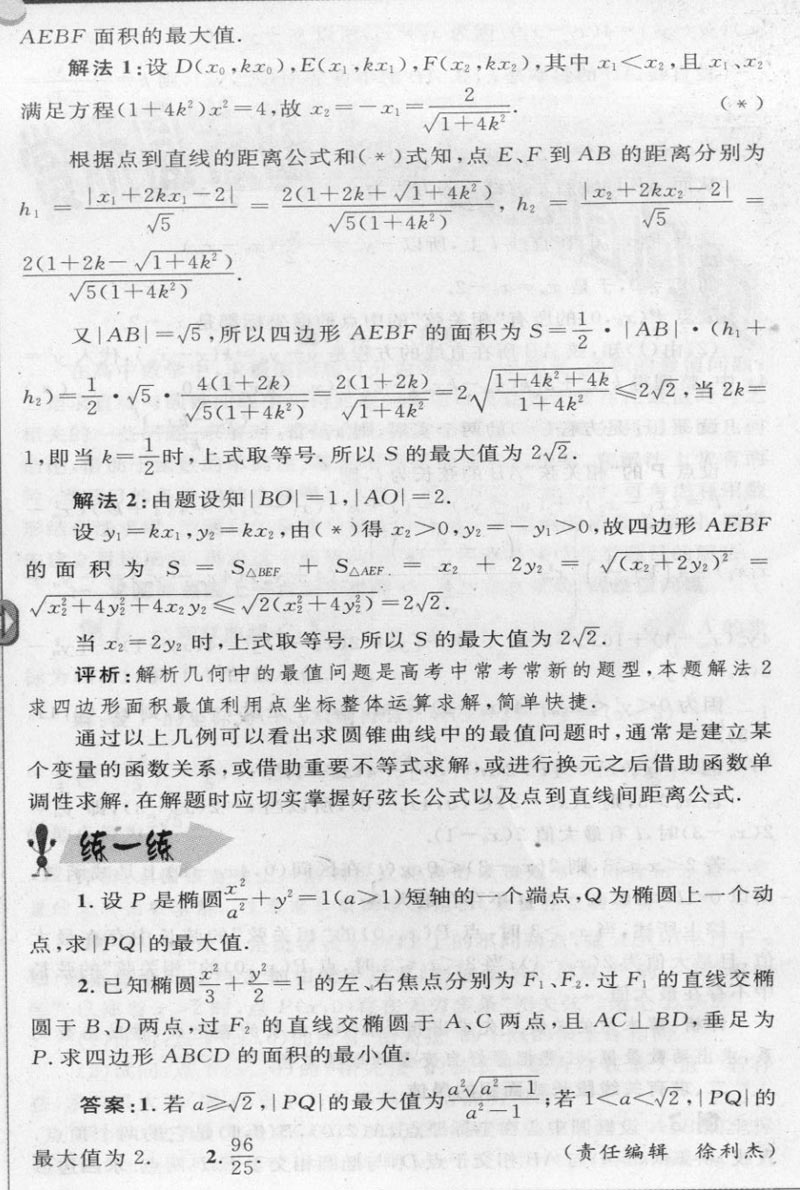 AEBF 面积的最大值.
解法 1:设 D(x₀,kx₀),E(x₁,kx₁),F(x₂,kx₂),其中 x₁<x₂,且 x₁、x₂
满足方程(1+4k²)x²=4,故 x₂=-x₁=2/√(1+4k²). (*)
根据点到直线的距离公式和(*)式知,点 E、F 到 AB 的距离分别为
h₁ = |x₁+2kx₁-2|/√5 = 2(1+2k+√(1+4k²))/√(5(1+4k²)), h₂ = |x₂+2kx₂-2|/√5 =
2(1+2k-√(1+4k²))/√(5(1+4k²)).
又|AB|=√5,所以四边形 AEBF 的面积为 S=1/2·|AB|·(h₁+
h₂)=1/2·√5·4(1+2k)/√(5(1+4k²))=2(1+2k)/√(1+4k²)=2√((1+4k²+4k)/(1+4k²))≤2√2,当 2k=
1,即当 k=1/2时,上式取等号.所以 S 的最大值为 2√2.
解法 2:由题设知|BO|=1,|AO|=2.
设 y₁=kx₁,y₂=kx₂,由(*)得 x₂>0,y₂=-y₁>0,故四边形 AEBF
的面积为 S = S△BEF + S△AEF = x₂ + 2y₂ = √((x₂+2y₂)²) =
√(x₂²+4y₂²+4x₂y₂)≤√(2(x₂²+4y₂²))=2√2.
当 x₂=2y₂ 时,上式取等号.所以 S 的最大值为 2√2.
评析:解析几何中的最值问题是高考中常考常新的题型,本题解法 2
求四边形面积最值利用点坐标整体运算求解,简单快捷.
通过以上几例可以看出求圆锥曲线中的最值问题时,通常是建立某
个变量的函数关系,或借助重要不等式求解,或进行换元之后借助函数单
调性求解.在解题时应切实掌握好弦长公式以及点到直线间距离公式.
练一练
1.设 P 是椭圆x²/a²+y²=1(a>1)短轴的一个端点,Q 为椭圆上一个动
点,求|PQ|的最大值.
2.已知椭圆x²/3+y²/2=1 的左、右焦点分别为 F₁、F₂.过 F₁ 的直线交椭
圆于 B、D 两点,过 F₂ 的直线交椭圆于 A、C 两点,且 AC⊥BD,垂足为
P.求四边形 ABCD 的面积的最小值.
答案:1.若 a≥√2,|PQ|的最大值为a²√(a²-1)/(a²-1);若 1<a<√2,|PQ|的
最大值为 2. 2.96/25. (责任编辑 徐利杰)